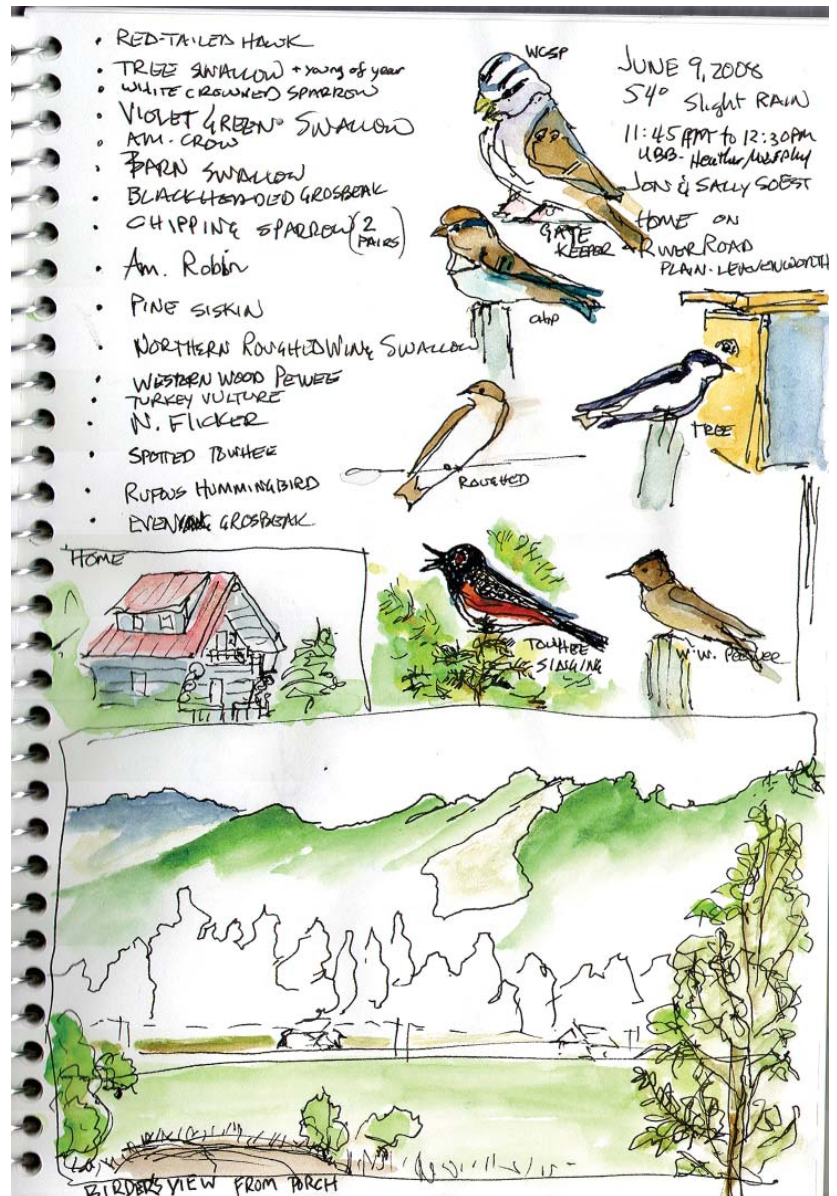 RED-TAILED HAWK
TREE SWALLOW + young of year
WHITE CROWNED SPARROW
VIOLET GREEN SWALLOW
AM. CROW
BARN SWALLOW
BLACKHEADED GROSBEAK
CHIPPING SPARROW (2 PAIRS)
Am. Robin
PINE SISKIN
NORTHERN ROUGHEDWING SWALLOW
WESTERN WOOD PEWEE
TURKEY VULTURE
N. FLICKER
SPOTTED TOWHEE
RUFOUS HUMMINGBIRD
EVENING GROSBEAK
WCSP
GATE
KEEPER
CHIP
JUNE 9, 2008
54° Slight RAIN
11:45 AM to 12:30PM
Heather Murphy
JON & SALLY SOEST
HOME ON
RIVER ROAD
PLAIN-LEAVENWORTH
TREE
ROUGHED
HOME
TOWHEE
SINGING
W.W. PEEWEE
BIRDER'S VIEW FROM PORCH